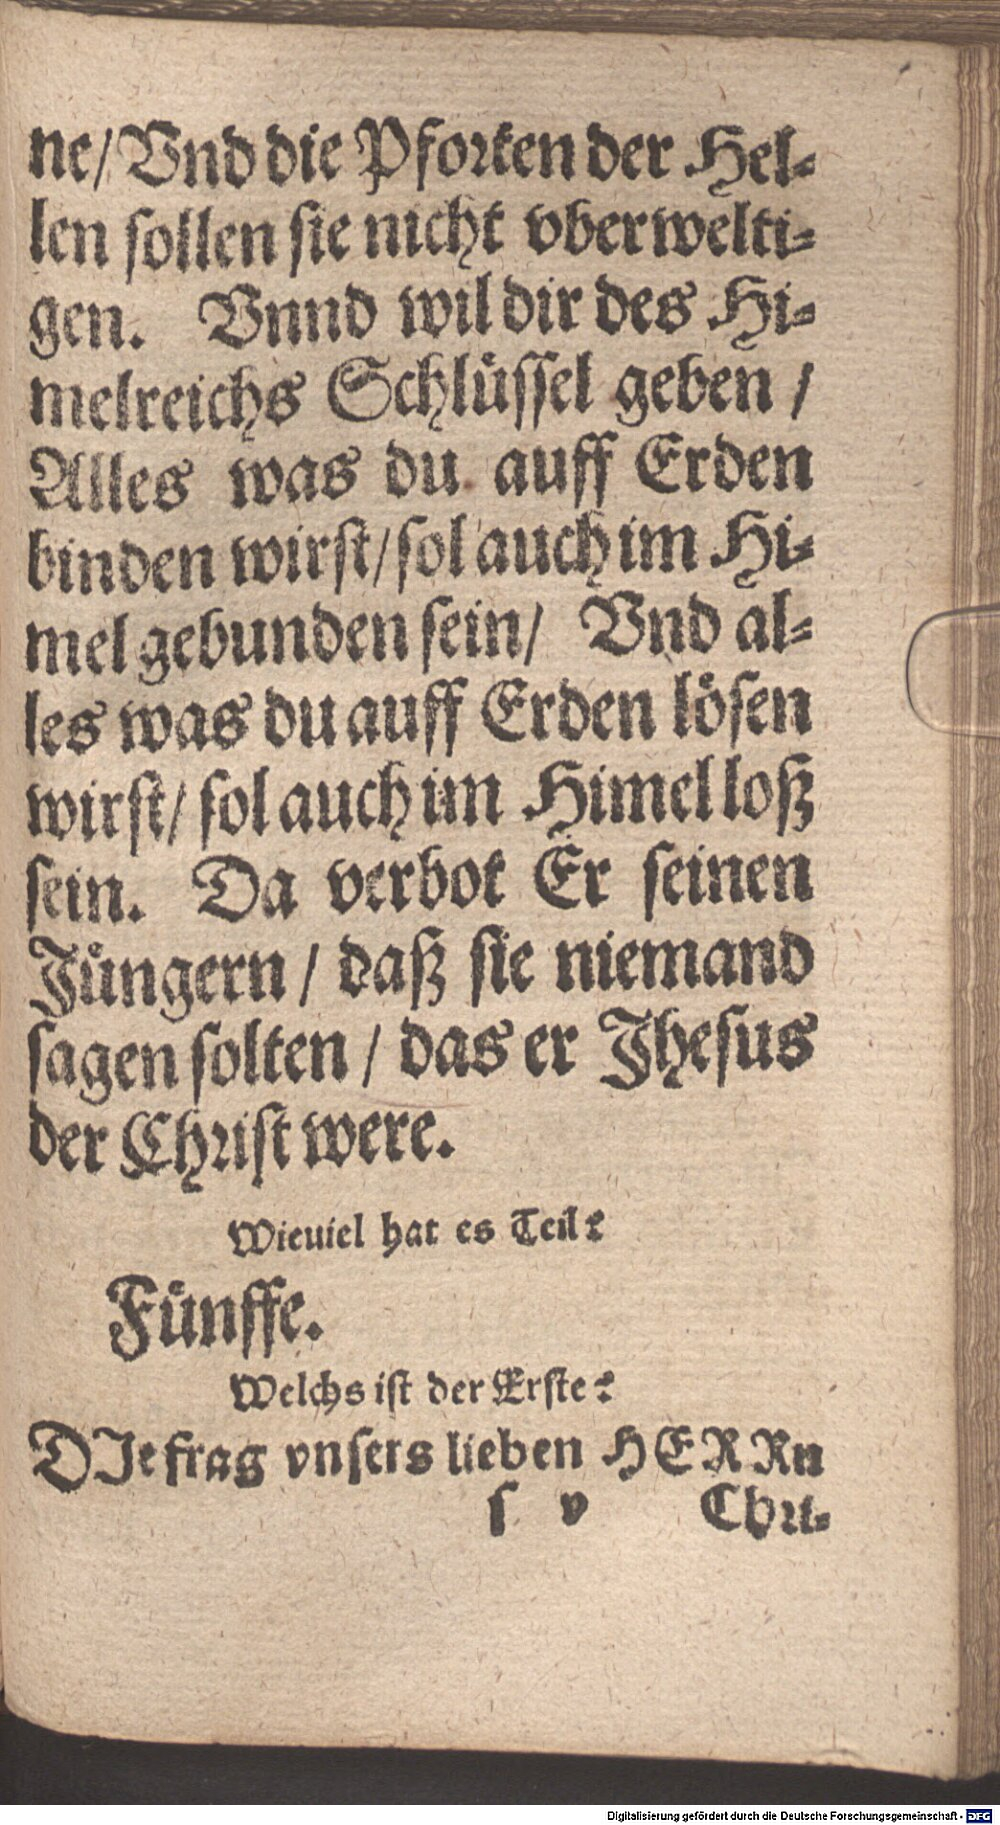 ne/ Vnd die Pforten der Hel⸗
len sollen sie nicht vberwelti⸗
gen. Vnnd wil dir des Hi⸗
melreichs Schlüssel geben /
Alles was du auff Erden
binden wirst/ sol auch im Hi⸗
mel gebunden sein/ Vnd al⸗
les was du auff Erden lösen
wirst/ sol auch im Himel loß
sein. Da verbot Er seinen
Jüngern / daß sie niemand
sagen solten / das er Jhesus
der Christ were.
Wieuiel hat es Teil?
Fünffe.
Welchs ist der Erste?
DIe frag vnsers lieben HERRn
s v Chri⸗
Digitalisierung gefördert durch die Deutsche Forschungsgemeinschaft - DFG